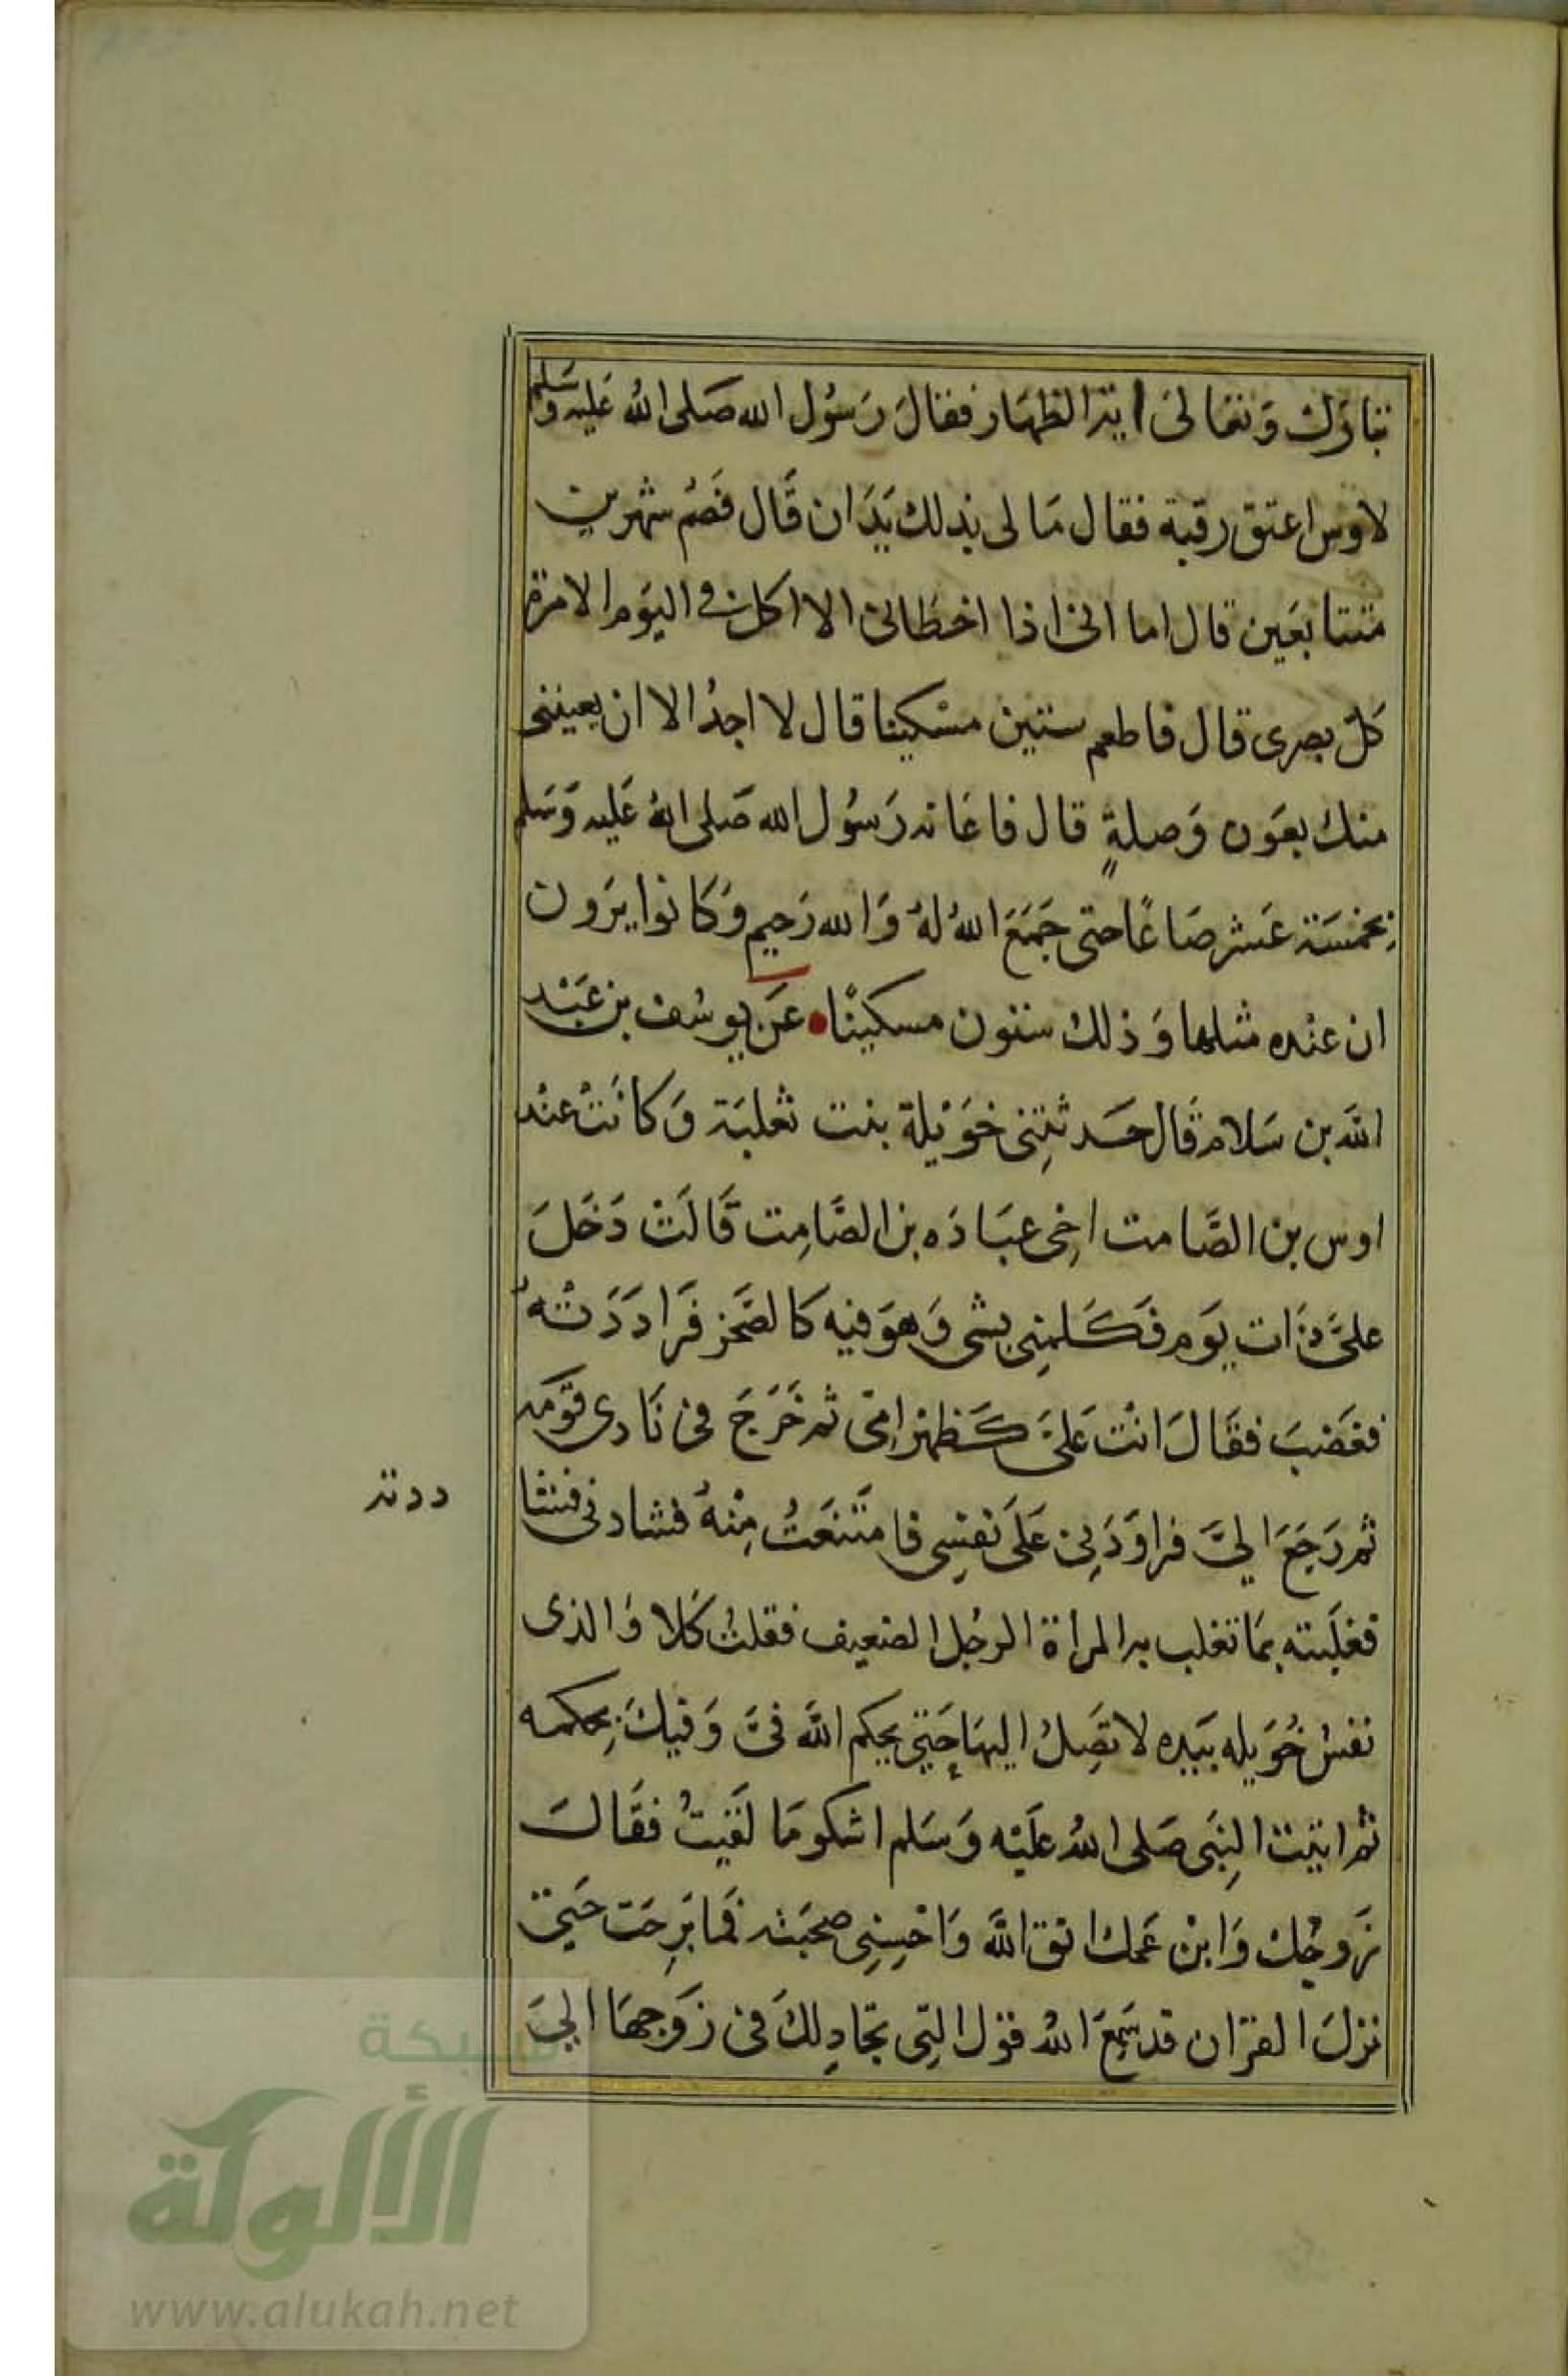 تبارك وَتعَالىَ اية الظهَار فقالَ رَسُول الله صَلى اللهُ عَليه وَسَلم
لاوس اعتق رقبة فقال مَا لى بذلك يَدَان قَال فَصُم شهرين
متتابعَين قال اما انى اذا اخطَانى الا اكل فى اليَوم الا مرة
كَلّ بصرى قال فاطعم ستين مسْكينا قال لا اجدُ الا ان يعيننى
منك بعَون وَصلةٍ قال فاعَانه رَسُول الله صَلى اللهُ عَليه وَسَلم
بخمسَة عَشر صَاعًا حتى جَمَعَ اللهُ لهُ وَالله رَحيم وَكانوا يرَون
ان عنْده مثلها وَذلك ستون مسكينًا عَن يوسُف بن عَبْد
الله بن سَلام قَال حَدثتِنى خوَيْلة بنت ثعلبَة وَكانَتْ عنْد
اوس بن الصَّامت اخِى عبَادَه بن الصَّامِت قَالَتْ دَخَلَ
علىَّ ذَات يوَم فَكَلمنِى بشى وَهوَ فيه كالضَّجر فَرَادَدَتْهُ
فغَضبَ فقَالَ انْت عَلىَّ كَظهْر امِّى ثم خَرَجَ فى نَادى قوَمه
ثم رَجَعَ الىَّ فرَاوَدَنِى عَلىَ نفسِى فامتَنَعَتُ مِنْهُ فشادنى
فغلَبته بمَا تغلب به المرأة الرجُل الضعيف فقلتُ كَلا وَالذى
نفسُ خُوَيله بيَده لا تصِلُ اليهَا حَتى يحكم الله فىَّ وَفيكَ بحكمه
ثم اتيت النِبَى صَلى اللهُ عَليْه وَسَلم اشكو مَا لَقيتُ فقَالَ
زَوجُك وَابنْ عَمك اتق اللهَ وَاحْسِنِى صحبَته فَما برِحَت حَتىَّ
نزلَ القرْان قد سَمِعَ اللهُ قوْل التِى تجَادِلكَ فى زَوجهَا الىَ
ددته
شبكة
الألوكة
www.alukah.net